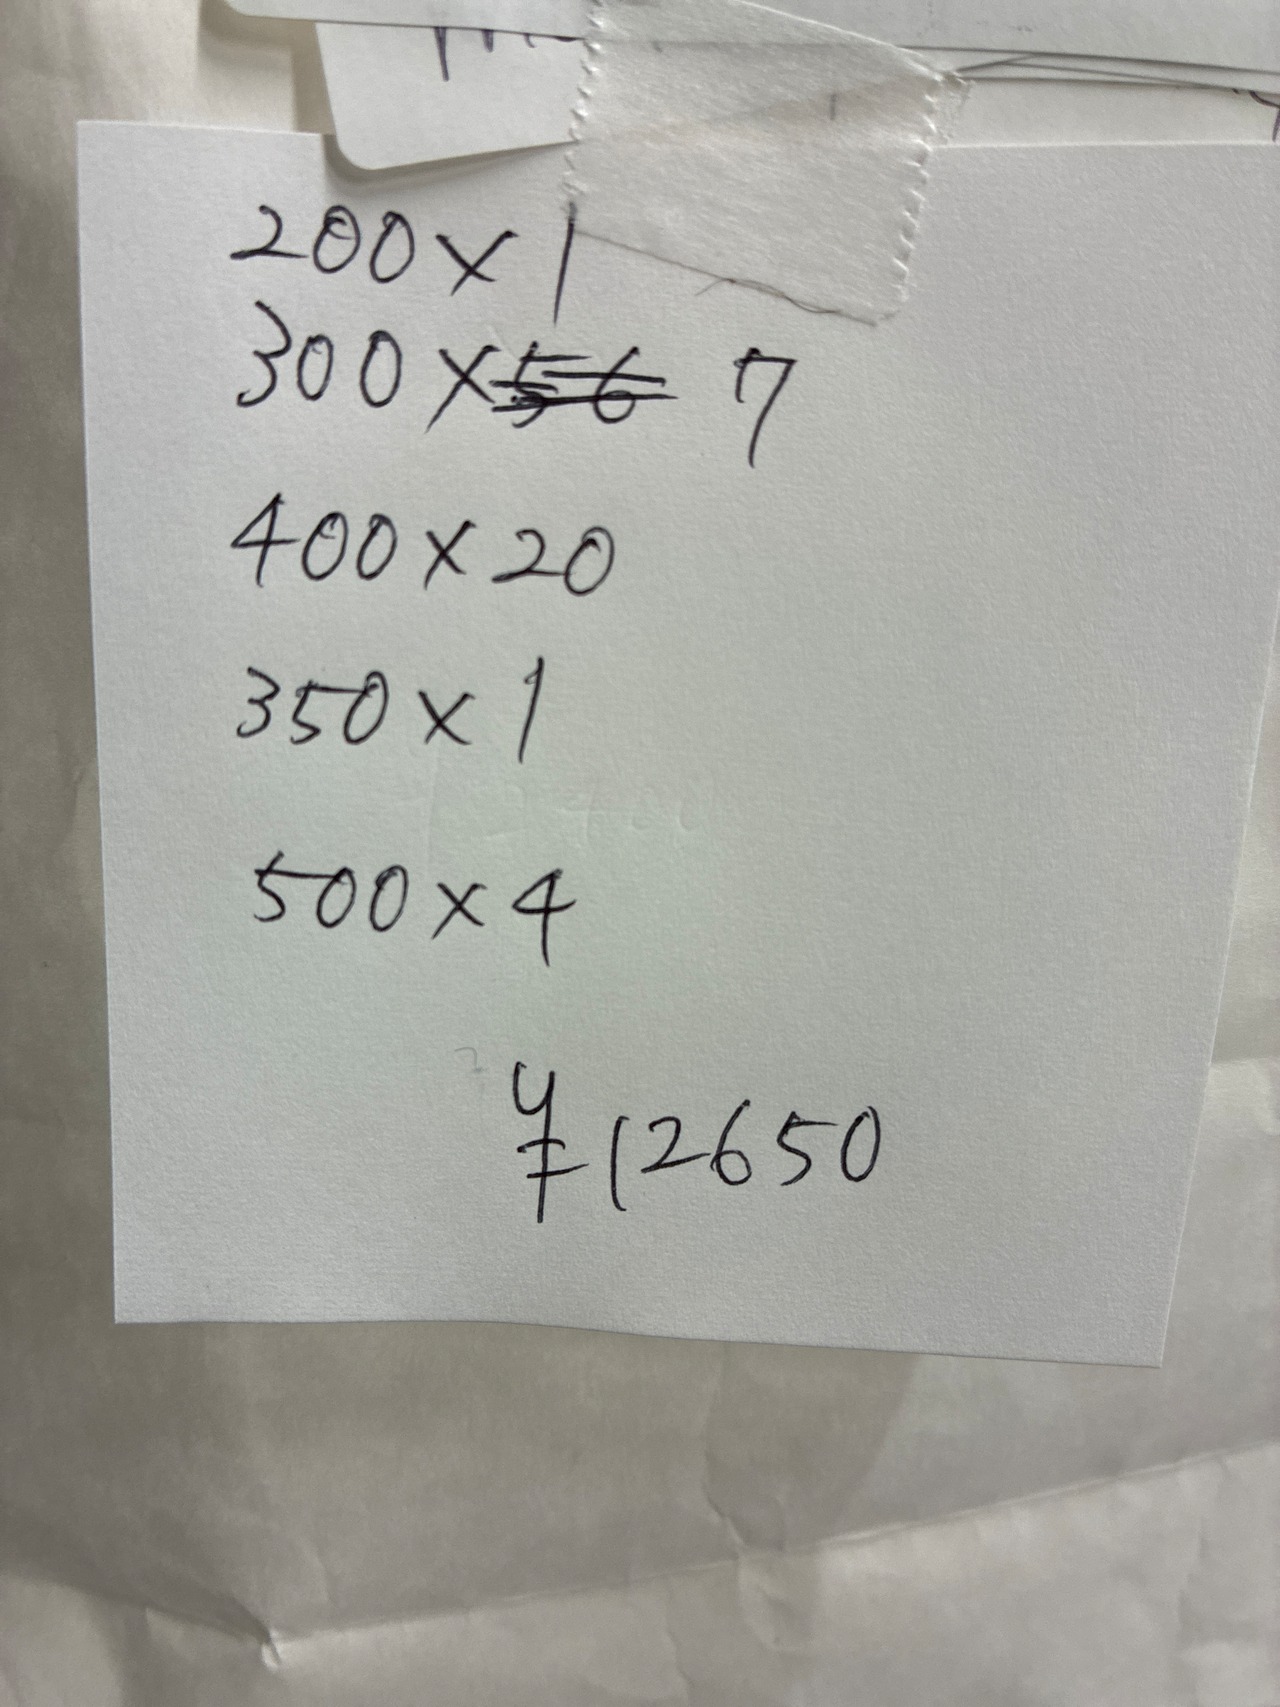 200×1
300×56 7
400×20
350×1
500×4
¥12650